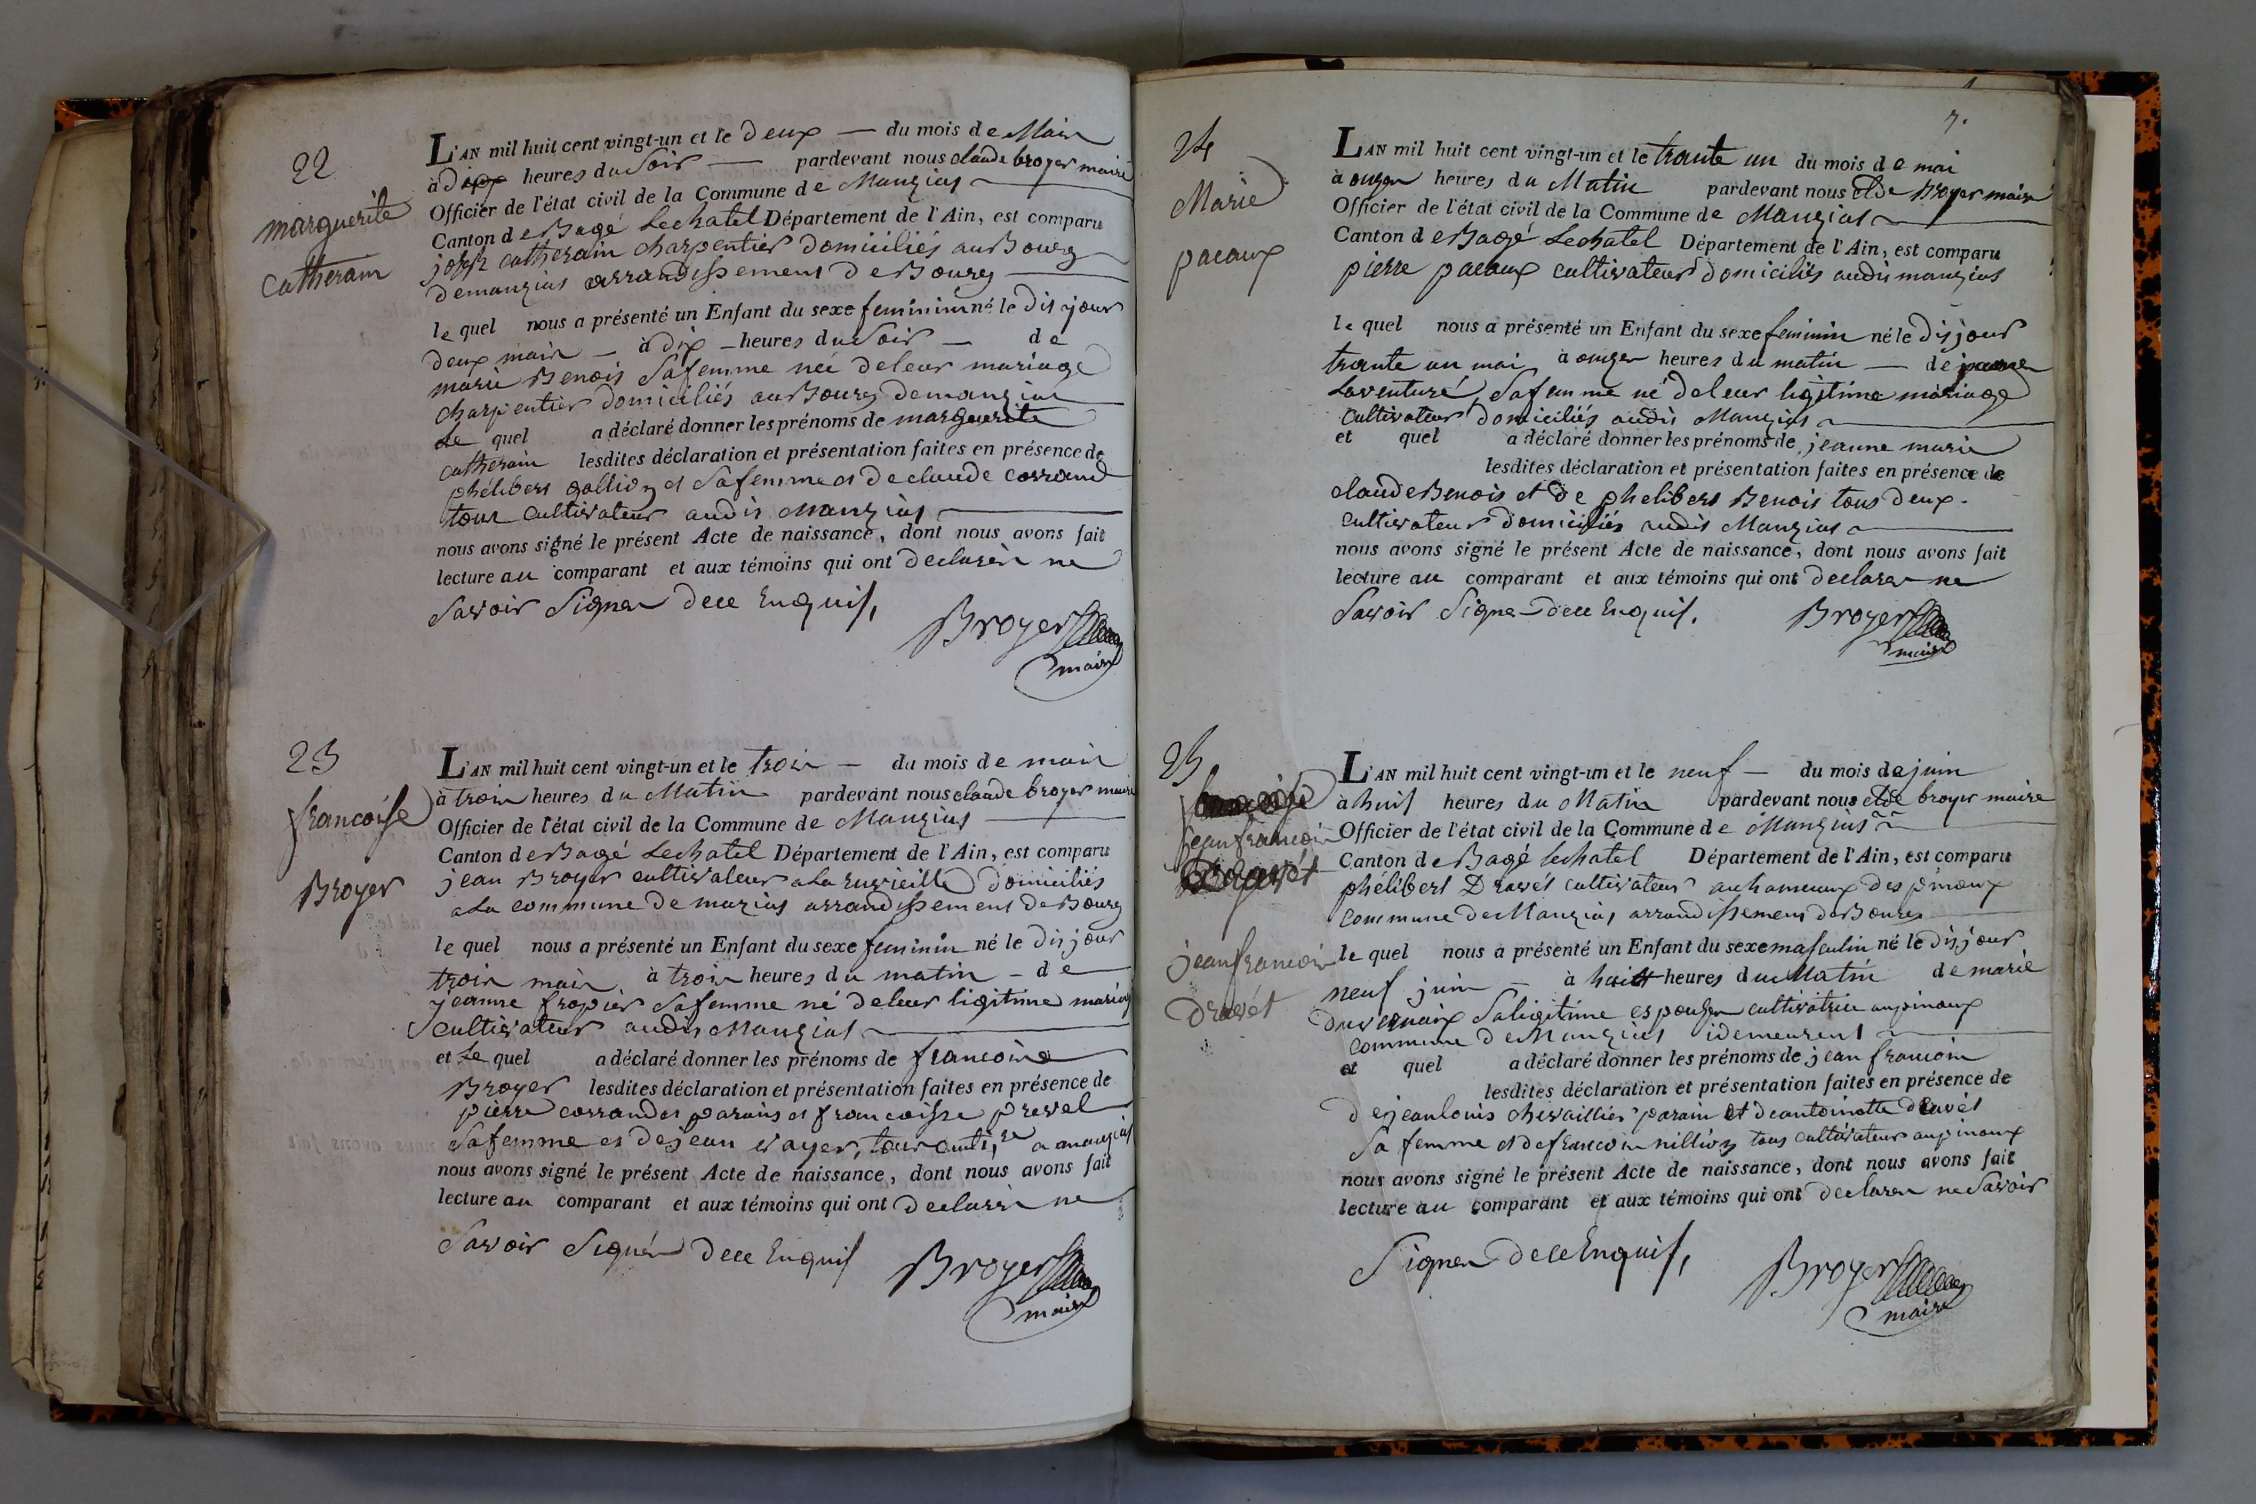 22
marguerite
catherain
L'AN mil huit cent vingt-un et le deux — du mois de Mais
à dix heures du Soir — pardevant nous claude broyer maire
Officier de l'état civil de la Commune de Manzias
Canton de Bagé Lechatel Département de l'Ain, est comparu
joseph catherain charpentier domiciliés au Bourg
demanzias arrandissement De Bourg
le quel nous a présenté un Enfant du sexe feminin né le dis jour
deux mais — à dix — heures du Soir — de
marie Benois Safemme née deleur mariage
charpentier domiciliés au Bourg demanzias
Le quel a déclaré donner les prénoms de marguerite
catherain lesdites déclaration et présentation faites en présence de
phélibert gollion et Safemme et de claude corrand
tous cultivateur audis Manzias
nous avons signé le présent Acte de naissance, dont nous avons fait
lecture au comparant et aux témoins qui ont declarér ne
Savoir Signer dece Enquis,
Broyer
maire
23
francoise
Broyer
L'AN mil huit cent vingt-un et le trois — du mois de mais
à trois heures du Matin pardevant nous claude broyer maire
Officier de l'état civil de la Commune de Manzias
Canton de Bagé Lechatel Département de l'Ain, est comparu
jean Broyer cultivateur a La ruvieille domiciliés
aLa commune de mazias arrandissement de Bourg
le quel nous a présenté un Enfant du sexe feminin né le dis jour
trois mais à trois heures du matin — de
jeanne fropier Safemme né deleur ligitime mariag
cultivateur audis Manzias
et Le quel a déclaré donner les prénoms de francoise
Broyer lesdites déclaration et présentation faites en présence de
pierre corrand et parains et francoisse prevel
Safemme et dejean vayer, tous culti, re a manzias
nous avons signé le présent Acte de naissance, dont nous avons fait
lecture au comparant et aux témoins qui ont declarér ne
Savoir Signér dece Enquis
Broyer
maire
7.
24
Marie
pacaux
L'AN mil huit cent vingt-un et le trante un du mois de mai
à onzer heures du Matin pardevant nous Clde Broyer maire
Officier de l'état civil de la Commune de Manzias
Canton de Bagé Lechatel Département de l'Ain, est comparu
pierre pacaux cultivateur domiciliés audis manzias
le quel nous a présenté un Enfant du sexe feminin né le dis jour
trante un mai à onzer heures du matin — de jeanne
Laventure, Safemme né deleur ligitime mariage
cultivateur domiciliés audis Manzias
et quel a déclaré donner les prénoms de jeanne marie
lesdites déclaration et présentation faites en présence de
claude Benois et de phelibers Benois tous deux
cultivateur domiciliés audis Manzias
nous avons signé le présent Acte de naissance, dont nous avons fait
lecture au comparant et aux témoins qui ont declarer ne
Savoir Signer dece Enquis.
Broyer
maire
25
jeanfrancois
jeanfrancois
dravét
L'AN mil huit cent vingt-un et le neuf — du mois de juin
à huit heures du Matin pardevant nous clde broyer maire
Officier de l'état civil de la Commune de Manzias
Canton de Bagé Lechatel Département de l'Ain, est comparu
phélibert Dravét cultivateur auhameaux des pinoux
commune de Manzias arrandissement de Bourg
le quel nous a présenté un Enfant du sexe masculin né le dis jour
neuf juin — à huitt heures du Matin de marie
duvernaix Saligitime espouzer cultivatrice aupinoux
commune de Manzias idemeurent
et quel a déclaré donner les prénoms de jean francoin
lesdites déclaration et présentation faites en présence de
dejeanlouis chevaillier parain et deantoinette dravét
Sa femme et defrancoin nillion tous cultivateur aupinoux
nous avons signé le présent Acte de naissance, dont nous avons fait
lecture au comparant et aux témoins qui ont declarer ne Savoir
Signer dece Enquis,
Broyer
maire